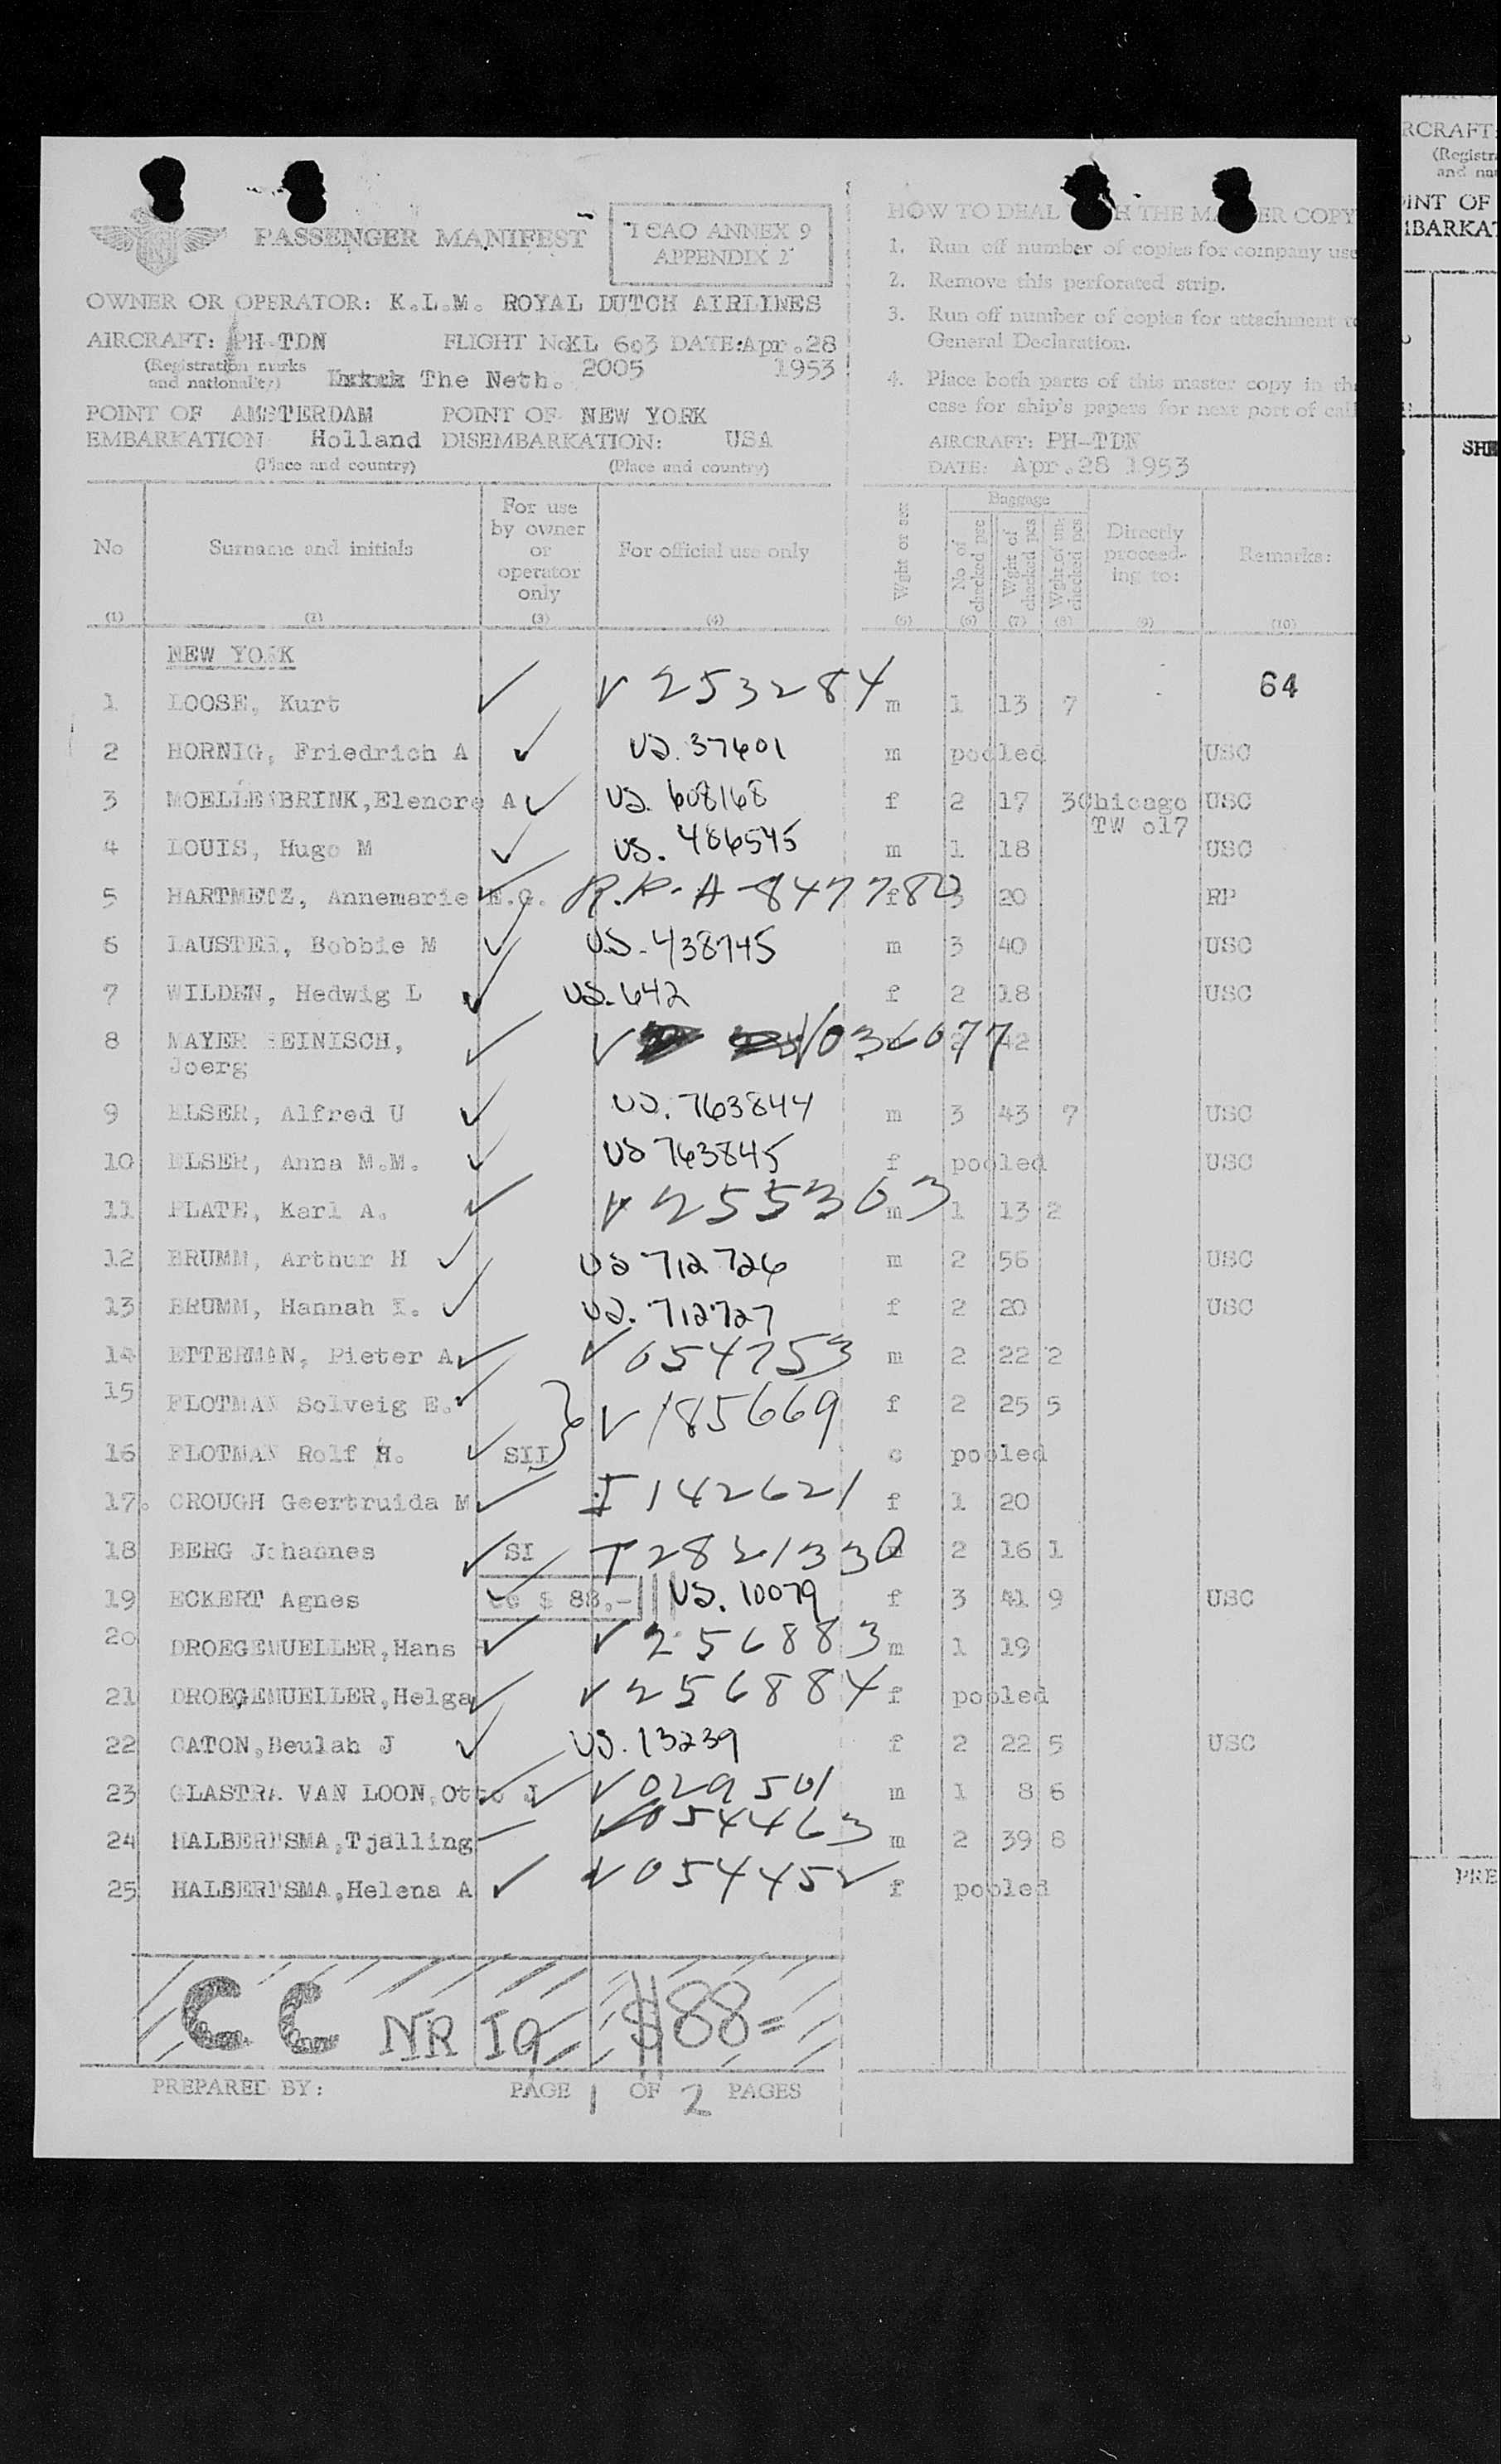 PASSENGER MANIFEST
ICAO ANNEX 9
APPENDIX 2
OWNER OR OPERATOR: K.L.M. ROYAL DUTCH AIRLINES
AIRCRAFT: PH-TDN FLIGHT No KL 603 DATE: Apr.28
(Registration marks and nationality) The Neth. 2005 1953
POINT OF AMSTERDAM POINT OF NEW YORK
EMBARKATION: Holland DISEMBARKATION: USA
(Place and country) (Place and country)
HOW TO DEAL THE COPY
1. Run off number of copies for company use
2. Remove this perforated strip.
3. Run off number of copies for attachment to
General Declaration.
4. Place both parts of this master copy in the
case for ship's papers for next port of call
AIRCRAFT: PH-TDN
DATE: Apr.28 1953
No Surname and initials For use by owner or operator only For official use only Wght or sex Baggage No of checked pcs Wght of checked pcs Wght of unchecked pcs Directly proceed-ing to: Remarks:
(1) (2) (3) (4) (5) (6) (7) (8) (9) (10)
NEW YORK
64
1 LOOSE, Kurt V 253284 m 1 13 7
2 HORNIG, Friedrich A US. 37601 m pooled USC
3 MOELLENBRINK,Elenore A US. 608168 f 2 17 3 Chicago USC
TW o17
4 LOUIS, Hugo M US. 486545 m 1 18 USC
5 HARTMETZ, Annemarie E.G. R.P. A-8477780 f 3 20 RP
6 LAUSTER, Bobbie M US. 438745 m 3 40 USC
7 WILDEN, Hedwig L US. 642 f 2 18 USC
8 MAYER REINISCH, V 036077 2 42
Joerg
9 ELSER, Alfred U US. 763844 m 3 43 7 USC
10 ELSER, Anna M.M. US 763845 f pooled USC
11 PLATE, Karl A. V 255303 m 1 13 2
12 BRUMM, Arthur H US 712726 m 2 56 USC
13 BRUMM, Hannah I. US. 712727 f 2 20 USC
14 ETTERMAN, Pieter A V 054753 m 2 22 2
15 FLOTMAN Solveig E. V 185669 f 2 25 5
16 FLOTMAN Rolf H. SII c pooled
17. CROUGH Geertruida M I 142621 f 1 20
18 BERG Johannes SI T 2821330 2 16 1
19 ECKERT Agnes cc $ 88,- US. 10079 f 3 41 9 USC
20 DROEGEMUELLER,Hans V 256883 m 1 19
21 DROEGEMUELLER,Helga V 256884 f pooled
22 CATON,Beulah J US. 13239 f 2 22 5 USC
23 GLASTRA VAN LOON,Otto J V 029501 m 1 8 6
24 HALBERTSMA,Tjalling V 054463 m 2 39 8
25 HALBERTSMA,Helena A V 054452 f pooled
CC NR 19 $88=
PREPARED BY: PAGE 1 OF 2 PAGES
RCRAFT:
(Registra
and nat
INT OF
MBARKAT
SHE
PRE